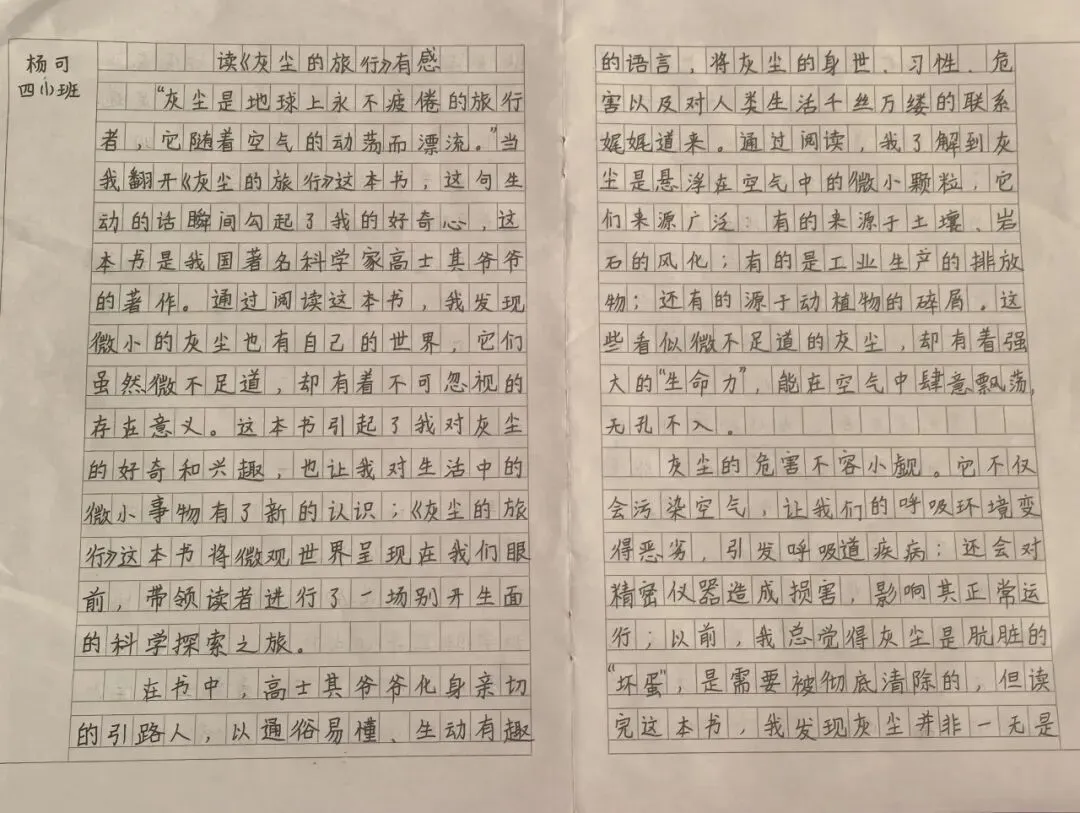 杨可
四(1)班
读《灰尘的旅行》有感
“灰尘是地球上永不疲倦的旅行
者，它随着空气的动荡而漂流。”当
我翻开《灰尘的旅行》这本书，这句生
动的话瞬间勾起了我的好奇心，这
本书是我国著名科学家高士其爷爷
的著作。通过阅读这本书，我发现
微小的灰尘也有自己的世界，它们
虽然微不足道，却有着不可忽视的
存在意义。这本书引起了我对灰尘
的好奇和兴趣，也让我对生活中的
微小事物有了新的认识；《灰尘的旅
行》这本书将微观世界呈现在我们眼
前，带领读者进行了一场别开生面
的科学探索之旅。
在书中，高士其爷爷化身亲切
的引路人，以通俗易懂、生动有趣
的语言，将灰尘的身世、习性、危
害以及对人类生活千丝万缕的联系
娓娓道来。通过阅读，我了解到灰
尘是悬浮在空气中的微小颗粒，它
们来源广泛：有的来源于土壤、岩
石的风化；有的是工业生产的排放
物；还有的源于动植物的碎屑。这
些看似微不足道的灰尘，却有着强
大的“生命力”，能在空气中肆意飘荡，
无孔不入。
灰尘的危害不容小觑。它不仅
会污染空气，让我们的呼吸环境变
得恶劣，引发呼吸道疾病；还会对
精密仪器造成损害，影响其正常运
行；以前，我总觉得灰尘是肮脏的
“坏蛋”，是需要被彻底清除的，但读
完这本书，我发现灰尘并非一无是